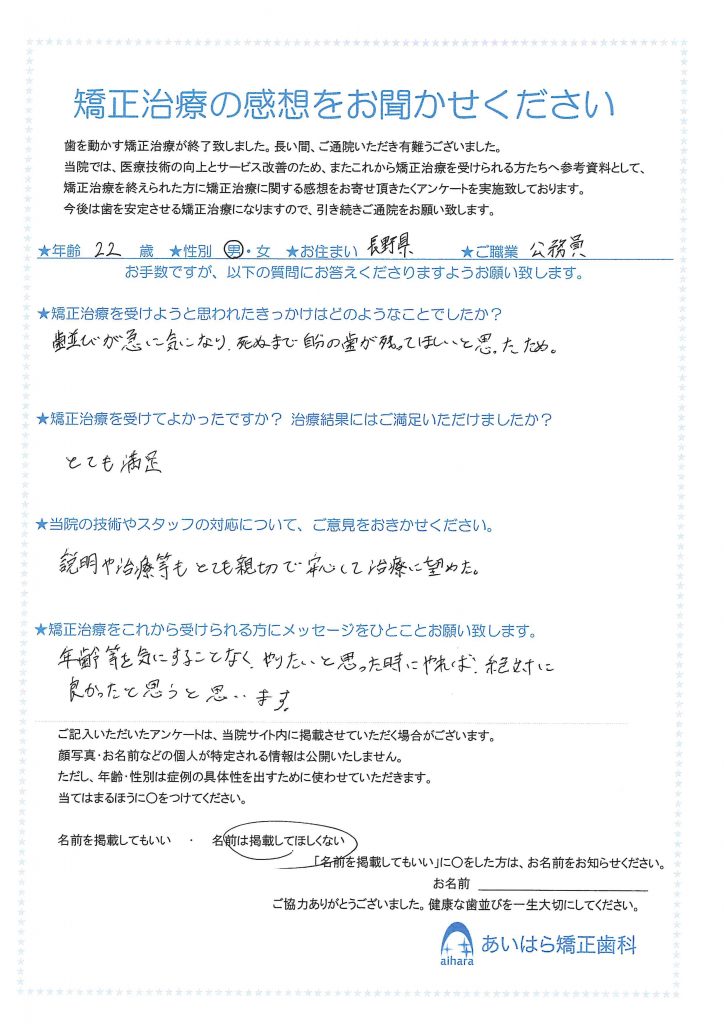 矯正治療の感想をお聞かせください
歯を動かす矯正治療が終了致しました。長い間、ご通院いただき有難うございました。
当院では、医療技術の向上とサービス改善のため、またこれから矯正治療を受けられる方たちへ参考資料として、
矯正治療を終えられた方に矯正治療に関する感想をお寄せ頂きたくアンケートを実施致しております。
今後は歯を安定させる矯正治療になりますので、引き続きご通院をお願い致します。
★年齢 22 歳 ★性別 男・女 ★お住まい 長野県 ★ご職業 公務員
お手数ですが、以下の質問にお答えくださりますようお願い致します。
★矯正治療を受けようと思われたきっかけはどのようなことでしたか？
歯並びが急に気になり、死ぬまで自分の歯が残ってほしいと思ったため。
★矯正治療を受けてよかったですか？ 治療結果にはご満足いただけましたか？
とても満足
★当院の技術やスタッフの対応について、ご意見をおきかせください。
説明や治療等もとても親切で安心して治療に望めた。
★矯正治療をこれから受けられる方にメッセージをひとことお願い致します。
年齢等を気にすることなく、やりたいと思った時にやれば、絶対に
良かったと思うと思います。
ご記入いただいたアンケートは、当院サイト内に掲載させていただく場合がございます。
顔写真・お名前などの個人が特定される情報は公開いたしません。
ただし、年齢・性別は症例の具体性を出すために使わせていただきます。
当てはまるほうに○をつけてください。
名前を掲載してもいい ・ 名前は掲載してほしくない
「名前を掲載してもいい」に○をした方は、お名前をお知らせください。
お名前
ご協力ありがとうございました。健康な歯並びを一生大切にしてください。
aihara あいはら矯正歯科